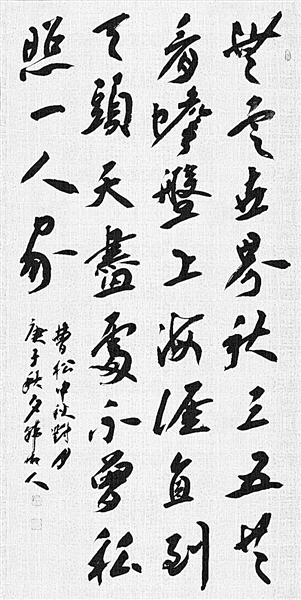 無雲世界秋三五共
看蟾盤上海涯直到
天頭天盡處不曾私
照一人家
曹松中秋對月
庚子秋夕人